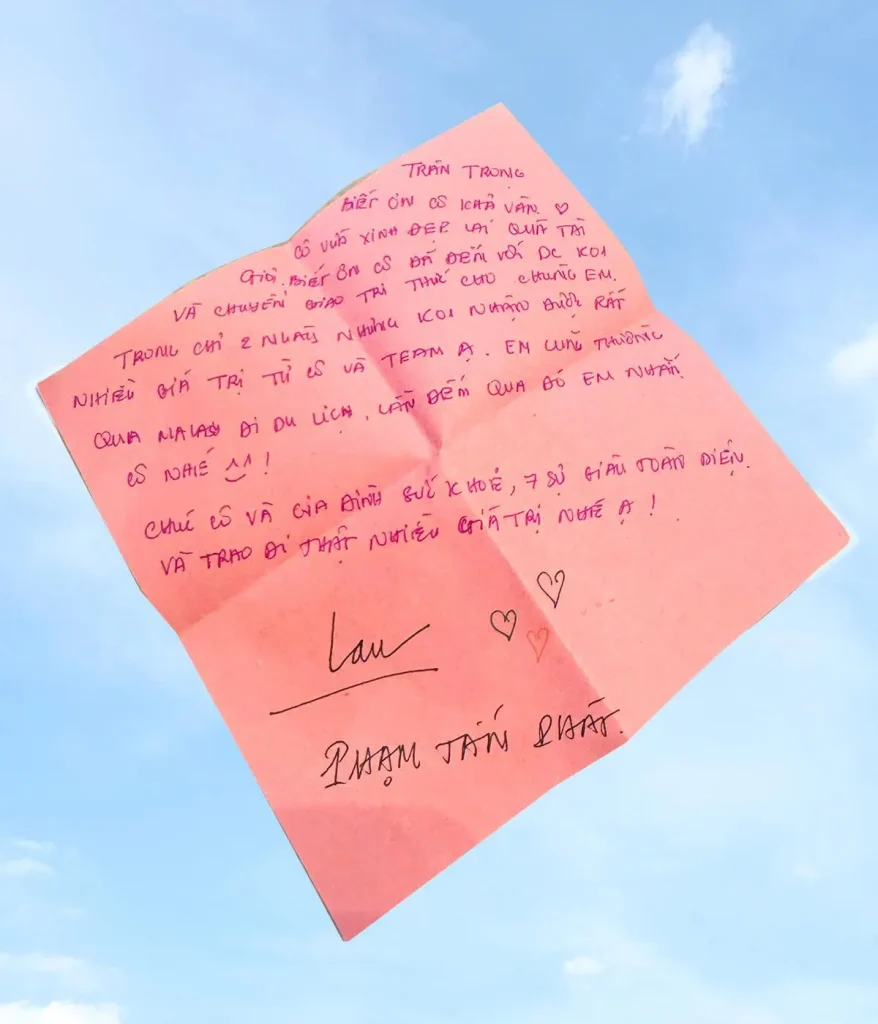 TRÂN TRỌNG
BIẾT ƠN CÔ KHẢ VÂN ♡
CÔ VỪA XINH ĐẸP LẠI QUÁ TÀI
GIỎI. BIẾT ƠN CÔ ĐÃ ĐẾN VỚI DC KOI
VÀ CHUYỂN GIAO TRI THỨC CHO CHÚNG EM.
TRONG CHỈ 2 NGÀY NHƯNG KOI NHẬN ĐƯỢC RẤT
NHIỀU GIÁ TRỊ TỪ CÔ VÀ TEAM Ạ. EM CŨNG THƯỜNG
QUA MALAY ĐI DU LỊCH, LẦN ĐẾN QUA ĐÓ EM NHẮN
CÔ NHÉ ^^!
CHÚC CÔ VÀ GIA ĐÌNH SỨC KHOẺ, 7 SỰ GIÀU TOÀN DIỆN.
VÀ TRAO ĐI THẬT NHIỀU GIÁ TRỊ NHÉ Ạ!
PHẠM TẤN PHÁT.